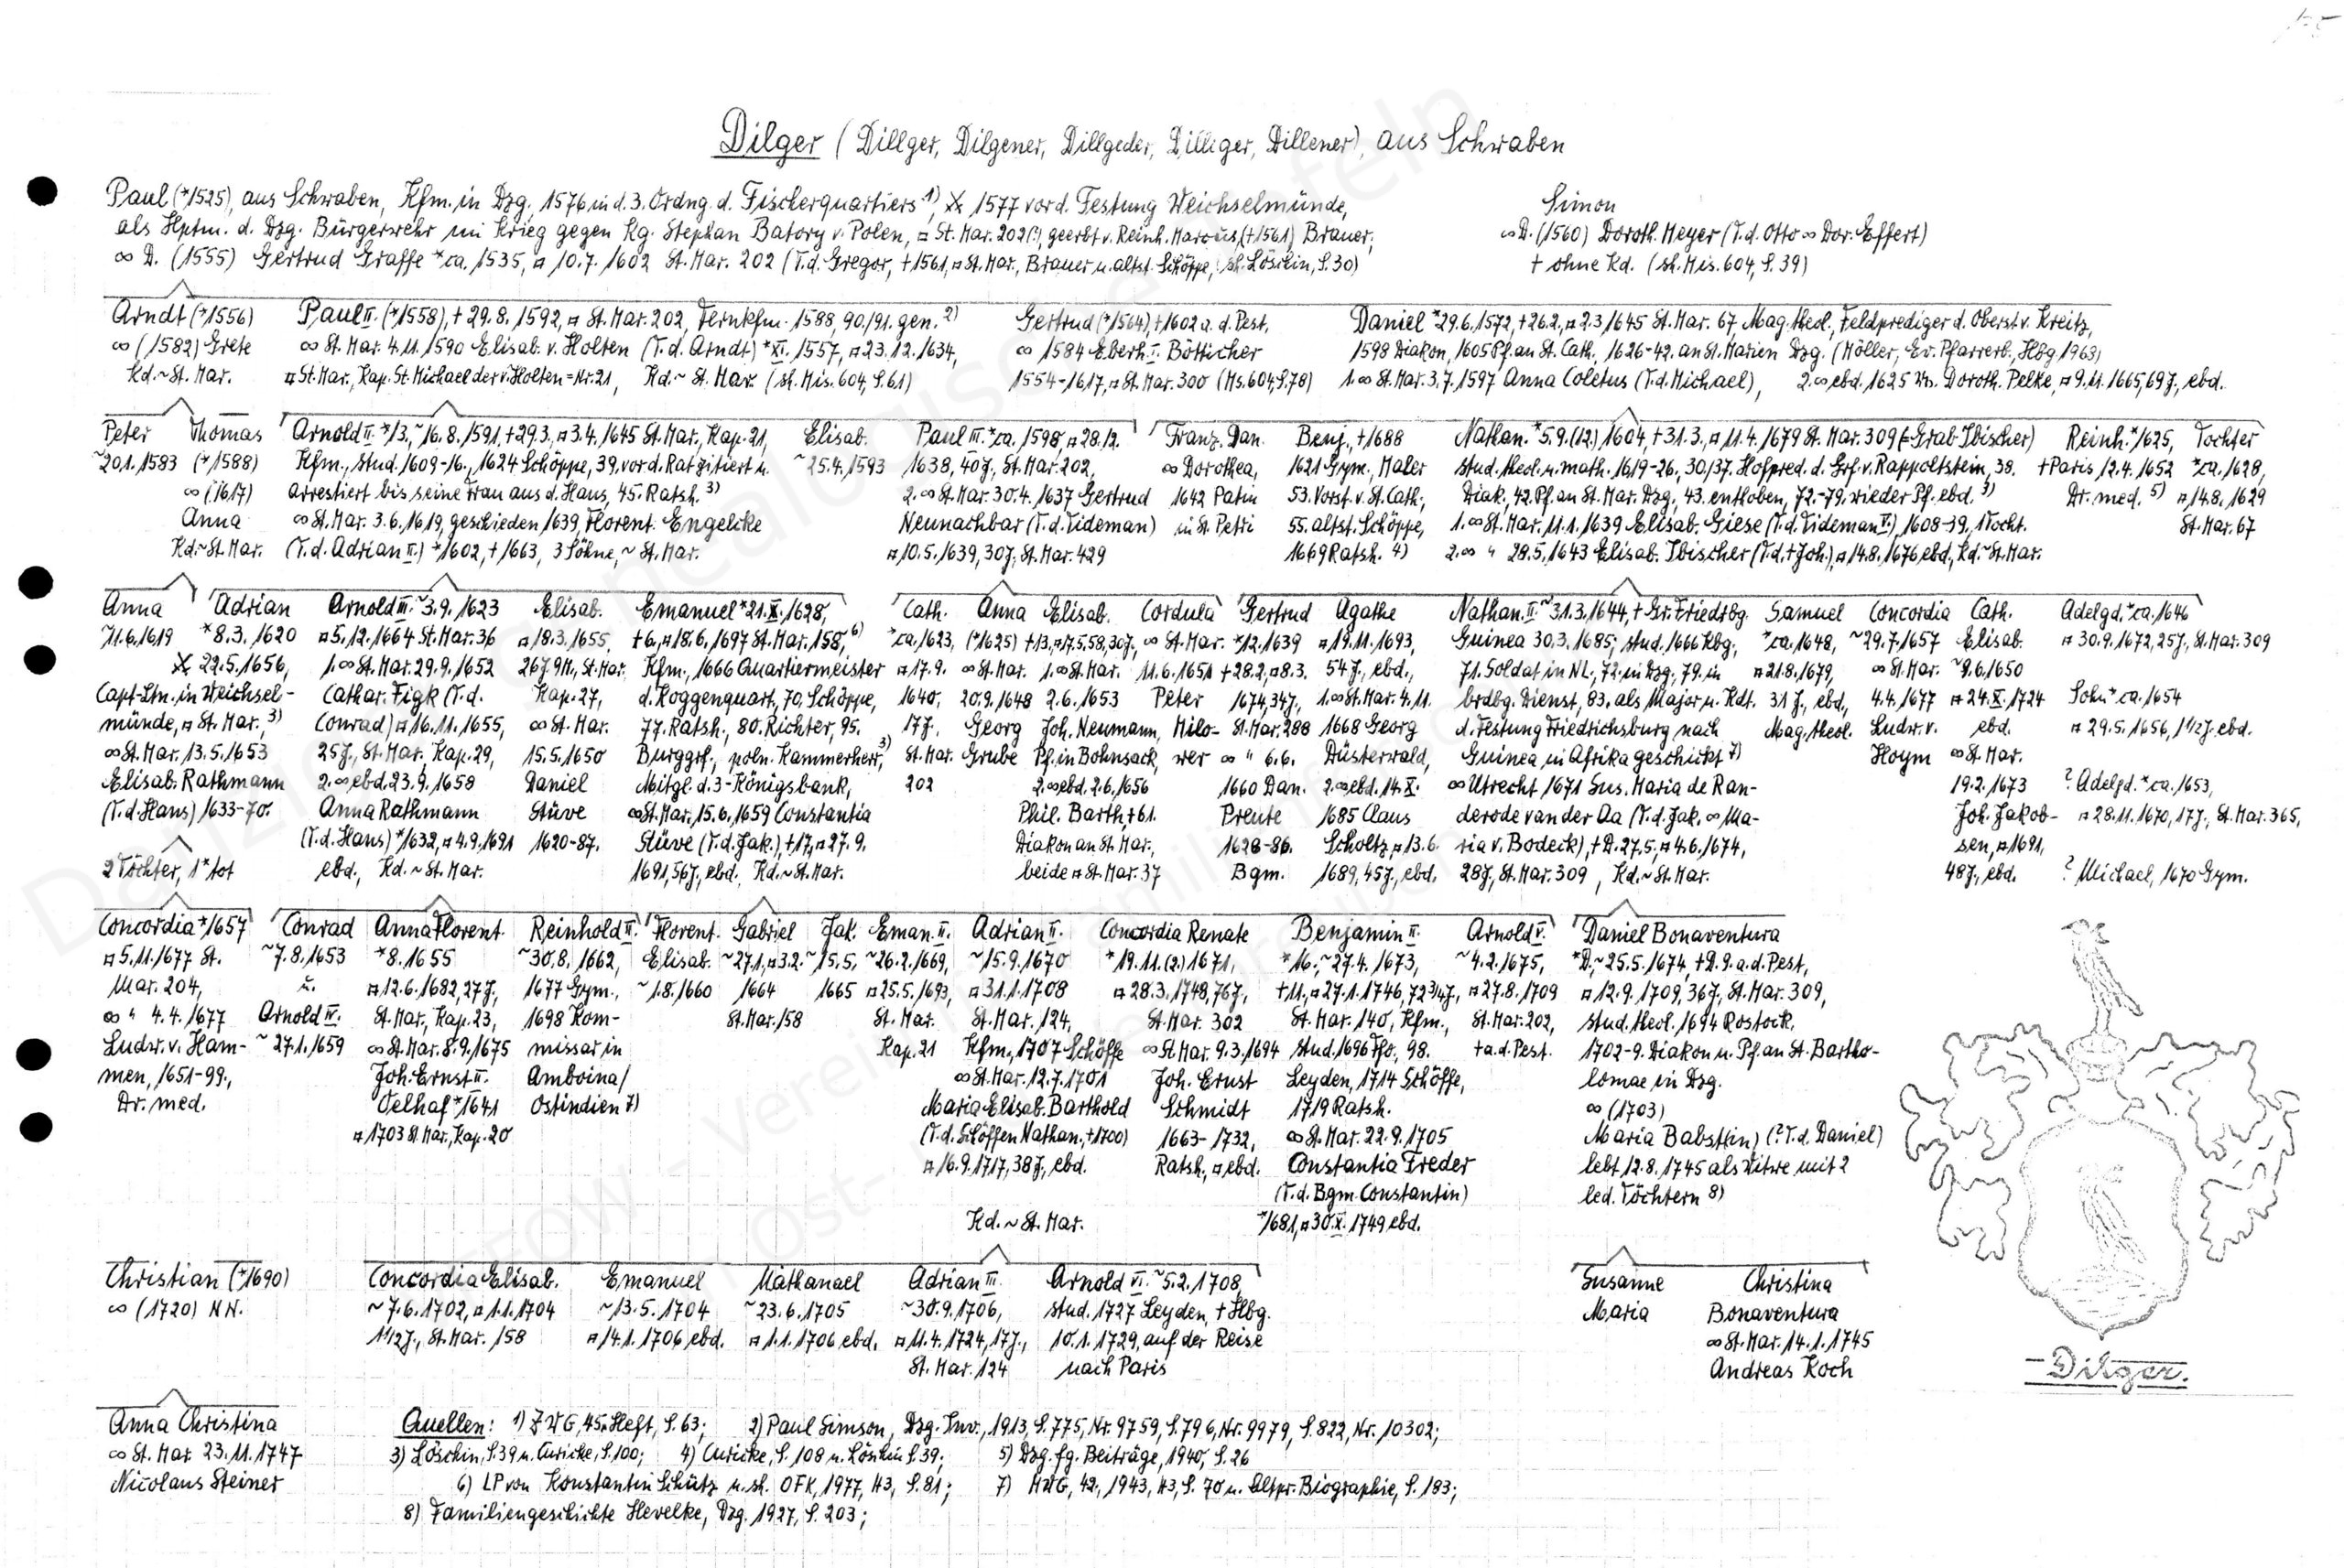 Dilger (Dillger, Dilgener, Dillgeder, Dilliger, Dillener), aus Schwaben
Paul (*1525), aus Schwaben, Kfm. in Dzg., 1576 in d. 3. Ordng. d. Fischerquartiers 1), ⚔ 1577 vor d. Festung Weichselmünde,
als Hptm. d. Dzg. Bürgerwehr im Krieg gegen Kg. Stephan Batory v. Polen, ¤ St. Mar. 202(?), geerbt v. Reinh. Marcus, (+1561) Brauer,
∞ D. (1555) Gertrud Graffe *ca. 1535, ¤ 10.7.1602 St. Mar. 202 (T.d. Gregor, +1561, ¤ St. Mar., Brauer u. altst. Schöppe, sh. Löschin, S.30)
Simon
∞ D. (1560) Doroth. Meyer (T.d. Otto ∞ Dor. Effert)
+ ohne Kd. (sh. Mis. 604, S. 39)
Arndt (*1556)
∞ (1582) Grete
Kd. ~ St. Mar.
Paul II. (*1558), + 29.8.1592, ¤ St. Mar. 202, Fernkfm. 1588, 90./91. gen. 2)
∞ St. Mar. 4.11.1590 Elisab. v. Holten (T.d. Arndt) *XI. 1557, ¤ 23.12.1634,
¤ St. Mar., Kap. St. Michael der v. Holten = Nr. 21, Kd. ~ St. Mar. (sh. Mis. 604, S. 61)
Gertrud (*1564) +1602 a. d. Pest,
∞ 1584 Eberh. I. Bötticher
1554-1617, ¤ St. Mar. 300 (Ms. 604, S. 78)
Daniel *29.6.1572, +26.2., ¤ 2.3.1645 St. Mar. 67, Mag. theol., Feldprediger d. Oberst v. Kreitz,
1598 Diakon, 1605 Pf. an St. Cath., 1626-42. an St. Marien Dzg. (Möller, Ev. Pfarrerb., Hbg. 1963)
1. ∞ St. Mar. 3.7.1597 Anna Coletus (T.d. Michael), 2. ∞ ebd. 1625 Wn. Doroth. Pelke, ¤ 9.11.1665, 69J., ebd.
Peter
~ 20.1.1583
Thomas
(*1588)
∞ (1617)
Anna
Kd. ~ St. Mar.
Arnold II. *13., ~16.8.1591, +29.3., ¤ 3.4.1645 St. Mar., Kap. 21,
Kfm., stud. 1609-16., 1624 Schöppe, 39. vor d. Rat zitiert u.
arrestiert bis seine Frau aus d. Haus, 45. Ratsh. 3)
∞ St. Mar. 3.6.1619, geschieden 1639, Florent. Engelcke
(T.d. Adrian II.) *1602, +1663, 3 Söhne, ~ St. Mar.
Elisab.
~ 25.4.1593
Paul III. *ca. 1598, ¤ 28.12.
1638, 40J., St. Mar. 202,
2. ∞ St. Mar. 30.4.1637 Gertrud
Neunachbar (T.d. Tideman)
¤ 10.5.1639, 30J., St. Mar. 429
Franz. Dan.
∞ Dorothea,
1642 Patin
in St. Petri
Benj., +1688
1621 Gym., Maler
53. Vorst. v. St. Cath.,
55. altst. Schöppe,
1669 Ratsh. 4)
Nathan. *5.9.(12.) 1604, +31.3., ¤ 11.4.1679 St. Mar. 309 (= Grab Ibischer)
stud. theol. u. math. 1619-26, 30./37. Hofpred. d. Grf. v. Rappoltstein, 38.
Diak., 42. Pf. an St. Mar. Dzg., 43. enthoben, 72.-79. wieder Pf. ebd. 3)
1. ∞ St. Mar. 11.1.1639 Elisab. Giese (T.d. Tideman V.), 1608-39, 1 Tocht.
2. ∞ " 28.5.1643 Elisab. Ibischer (T.d. + Joh.), ¤ 14.8.1676 ebd., Kd. ~ St. Mar.
Reinh. *1625,
+ Paris 12.4.1652
Dr. med. 5)
Tochter
*ca. 1628,
¤ 14.8.1629
St. Mar. 67
Anna
~ 11.6.1619
Adrian
*8.3.1620
⚔ 22.5.1656,
Capt-Ltn. in Weichsel-
münde, ¤ St. Mar., 3)
∞ St. Mar. 13.5.1653
Elisab. Rathmann
(T.d. Hans) 1633-70.
2 Töchter, 1 * tot
Arnold III. ~ 3.9.1623
¤ 5.12.1664 St. Mar. 36
1. ∞ St. Mar. 29.9.1652
Cathar. Figk (T.d.
Conrad) ¤ 16.11.1655,
25J., St. Mar. Kap. 29,
2. ∞ ebd. 23.9.1658
Anna Rathmann
(T.d. Hans) *1632, ¤ 4.9.1691
ebd., Kd. ~ St. Mar.
Elisab.
¤ 18.3.1655,
26J 9M, St. Mar.
Kap. 27,
∞ St. Mar.
15.5.1650
Daniel
Stüve
1620-87.
Emanuel *21.X.1628,
+6., ¤ 18.6.1697 St. Mar. 158, 6)
Kfm., 1666 Quartiermeister
d. Koggenquart., 70. Schöppe,
77. Ratsh., 80. Richter, 95.
Burggrf., poln. Kammerherr, 3)
Mitgl. d. 3-Königsbank,
∞ St. Mar. 15.6.1659 Constantia
Stüve (T.d. Jak.), +17., ¤ 27.9.
1691, 56J., ebd., Kd. ~ St. Mar.
Cath.
*ca. 1623,
¤ 17.9.
1640,
17J.
St. Mar.
202
Anna
(*1625)
∞ St. Mar.
20.9.1648
Georg
Grube
Elisab.
+13., ¤ 17.5.58, 30J.,
1. ∞ St. Mar.
2.6.1653
Joh. Neumann,
Pf. in Bohnsack,
2. ∞ ebd. 2.6.1656
Phil. Barth, +61.
Diakon an St. Mar.,
beide ¤ St. Mar. 37
Cordula
∞ St. Mar.
11.6.1651
Peter
Milo-
wer
Gertrud
*12.1639
+28.2., ¤ 8.3.
1674, 34J.,
St. Mar. 288
∞ " 6.6.
1660 Dan.
Preute
1628-86.
Bgm.
Agathe
¤ 19.11.1693,
54J., ebd.,
1. ∞ St. Mar. 4.11.
1668 Georg
Düsterwald,
2. ∞ ebd. 14.X.
1685 Claus
Scholtz, ¤ 13.6.
1689, 45J., ebd.
Nathan. II. ~ 31.3.1644, + Gr. Friedrbg.
Guinea 30.3.1685; stud. 1666 Kbg.,
71. Soldat in NL., 72. in Dzg., 79. in
brdbg. Dienst, 83. als Major u. Kdt.
d. Festung Friedrichsburg nach
Guinea in Afrika geschickt 7)
∞ Utrecht 1671 Sus. Maria de Ran-
derode van der Aa (T.d. Jak. ∞ Ma-
ria v. Bodeck), +D. 27.5., ¤ 4.6.1674,
28J., St. Mar. 309, Kd. ~ St. Mar.
Samuel
*ca. 1648,
¤ 21.8.1679,
31 J., ebd.,
Mag. theol.
Concordia
~ 29.7.1657
∞ St. Mar.
4.4.1677
Ludw. v.
Hoym
Cath.
Elisab.
~ 9.6.1650
¤ 24.X.1724
ebd.
∞ St. Mar.
19.2.1673
Joh. Jakob-
sen, ¤ 1691,
48J., ebd.
Adelgd. *ca. 1646
¤ 30.9.1672, 25J., St. Mar. 309
Sohn *ca. 1654
¤ 29.5.1656, 1 1/2J. ebd.
? Adelgd. *ca. 1653,
¤ 28.11.1670, 17J., St. Mar. 365,
? Michael, 1670 Gym.
Concordia *1657
¤ 5.11.1677 St.
Mar. 204,
∞ " 4.4.1677
Ludw. v. Ham-
men, 1651-99.,
Dr. med.
Conrad
~ 7.8.1653
u.
Arnold IV.
~ 27.1.1659
Anna Florent.
*8.1655
¤ 12.6.1682, 27J.,
St. Mar., Kap. 23,
∞ St. Mar. 8.9.1675
Joh. Ernst II.
Oelhaf *1641
¤ 1703 St. Mar., Kap. 20
Reinhold II.
~ 30.8.1662,
1677 Gym.,
1698 Kom-
missar in
Amboina/
Ostindien 7)
Florent.
Elisab.
~ 1.8.1660
Gabriel
~ 27.1., ¤ 3.2.
1664
St. Mar. 158
Jak.
~ 15.5.
1665
Eman. II.
~ 26.2.1669,
¤ 25.5.1693,
St. Mar.
Kap. 21
Adrian II.
~ 15.9.1670
¤ 31.1.1708
St. Mar. 124,
Kfm., 1707 Schöffe
∞ St. Mar. 12.7.1701
Maria Elisab. Barthold
(T.d. Schöffen Nathan., +1700)
¤ 16.9.1717, 38J., ebd.
Kd. ~ St. Mar.
Concordia Renate
*19.11.(2.) 1671,
¤ 28.3.1748, 76J.,
St. Mar. 302
∞ St. Mar. 9.3.1694
Joh. Ernst
Schmidt
1663-1732,
Ratsh., ¤ ebd.
Benjamin II.
*16., ~ 27.4.1673,
+11., ¤ 27.1.1746, 72 3/4J.,
St. Mar. 140, Kfm.,
stud. 1696 Ffo., 98.
Leyden, 1714 Schöffe,
1719 Ratsh.
∞ St. Mar. 22.9.1705
Constantia Freder
(T.d. Bgm. Constantin)
*1681, ¤ 30.X.1749 ebd.
Arnold V.
~ 4.2.1675,
¤ 27.8.1709
St. Mar. 202,
+ a. d. Pest.
Daniel Bonaventura
*D., ~ 25.5.1674, +D. 9. a. d. Pest,
¤ 12.9.1709, 36J., St. Mar. 309,
stud. theol. 1694 Rostock,
1702-9. Diakon u. Pf. an St. Bartho-
lomae in Dzg.
∞ (1703)
Maria Babst(in) (? T.d. Daniel)
lebt 12.8.1745 als Witwe mit 2
led. Töchtern 8)
Christian (*1690)
∞ (1720) NN.
Concordia Elisab.
~ 7.6.1702, ¤ 1.1.1704
1 1/2J., St. Mar. 158
Emanuel
~ 13.5.1704
¤ 14.1.1706 ebd.
Nathanael
~ 23.6.1705
¤ 1.1.1706 ebd.
Adrian III.
~ 30.9.1706,
¤ 11.4.1724, 17J.,
St. Mar. 124
Arnold VI. ~ 5.2.1708,
stud. 1727 Leyden, + Hbg.
10.1.1729, auf der Reise
nach Paris
Susanne
Maria
Christina
Bonaventura
∞ St. Mar. 14.1.1745
Andreas Koch
Dilger.
Anna Christina
∞ St. Mar. 23.11.1747
Nicolaus Steiner
Quellen: 1) ZWG, 45. Heft, S. 63; 2) Paul Simson, Dzg. Inv., 1913, S. 775, Nr. 9759, S. 796, Nr. 9979, S. 822, Nr. 10302;
3) Löschin, S. 39 u. Curicke, S. 100; 4) Curicke, S. 108 u. Löschin S. 39; 5) Dzg. fg. Beiträge, 1940, S. 26
6) LP von Konstantin Schütz u. sh. OFK, 1977, H3, S. 81; 7) MWG, 42., 1943, H3, S. 70 u. Altpr. Biographie, S. 183;
8) Familiengeschichte Hevelke, Dzg. 1927, S. 203;